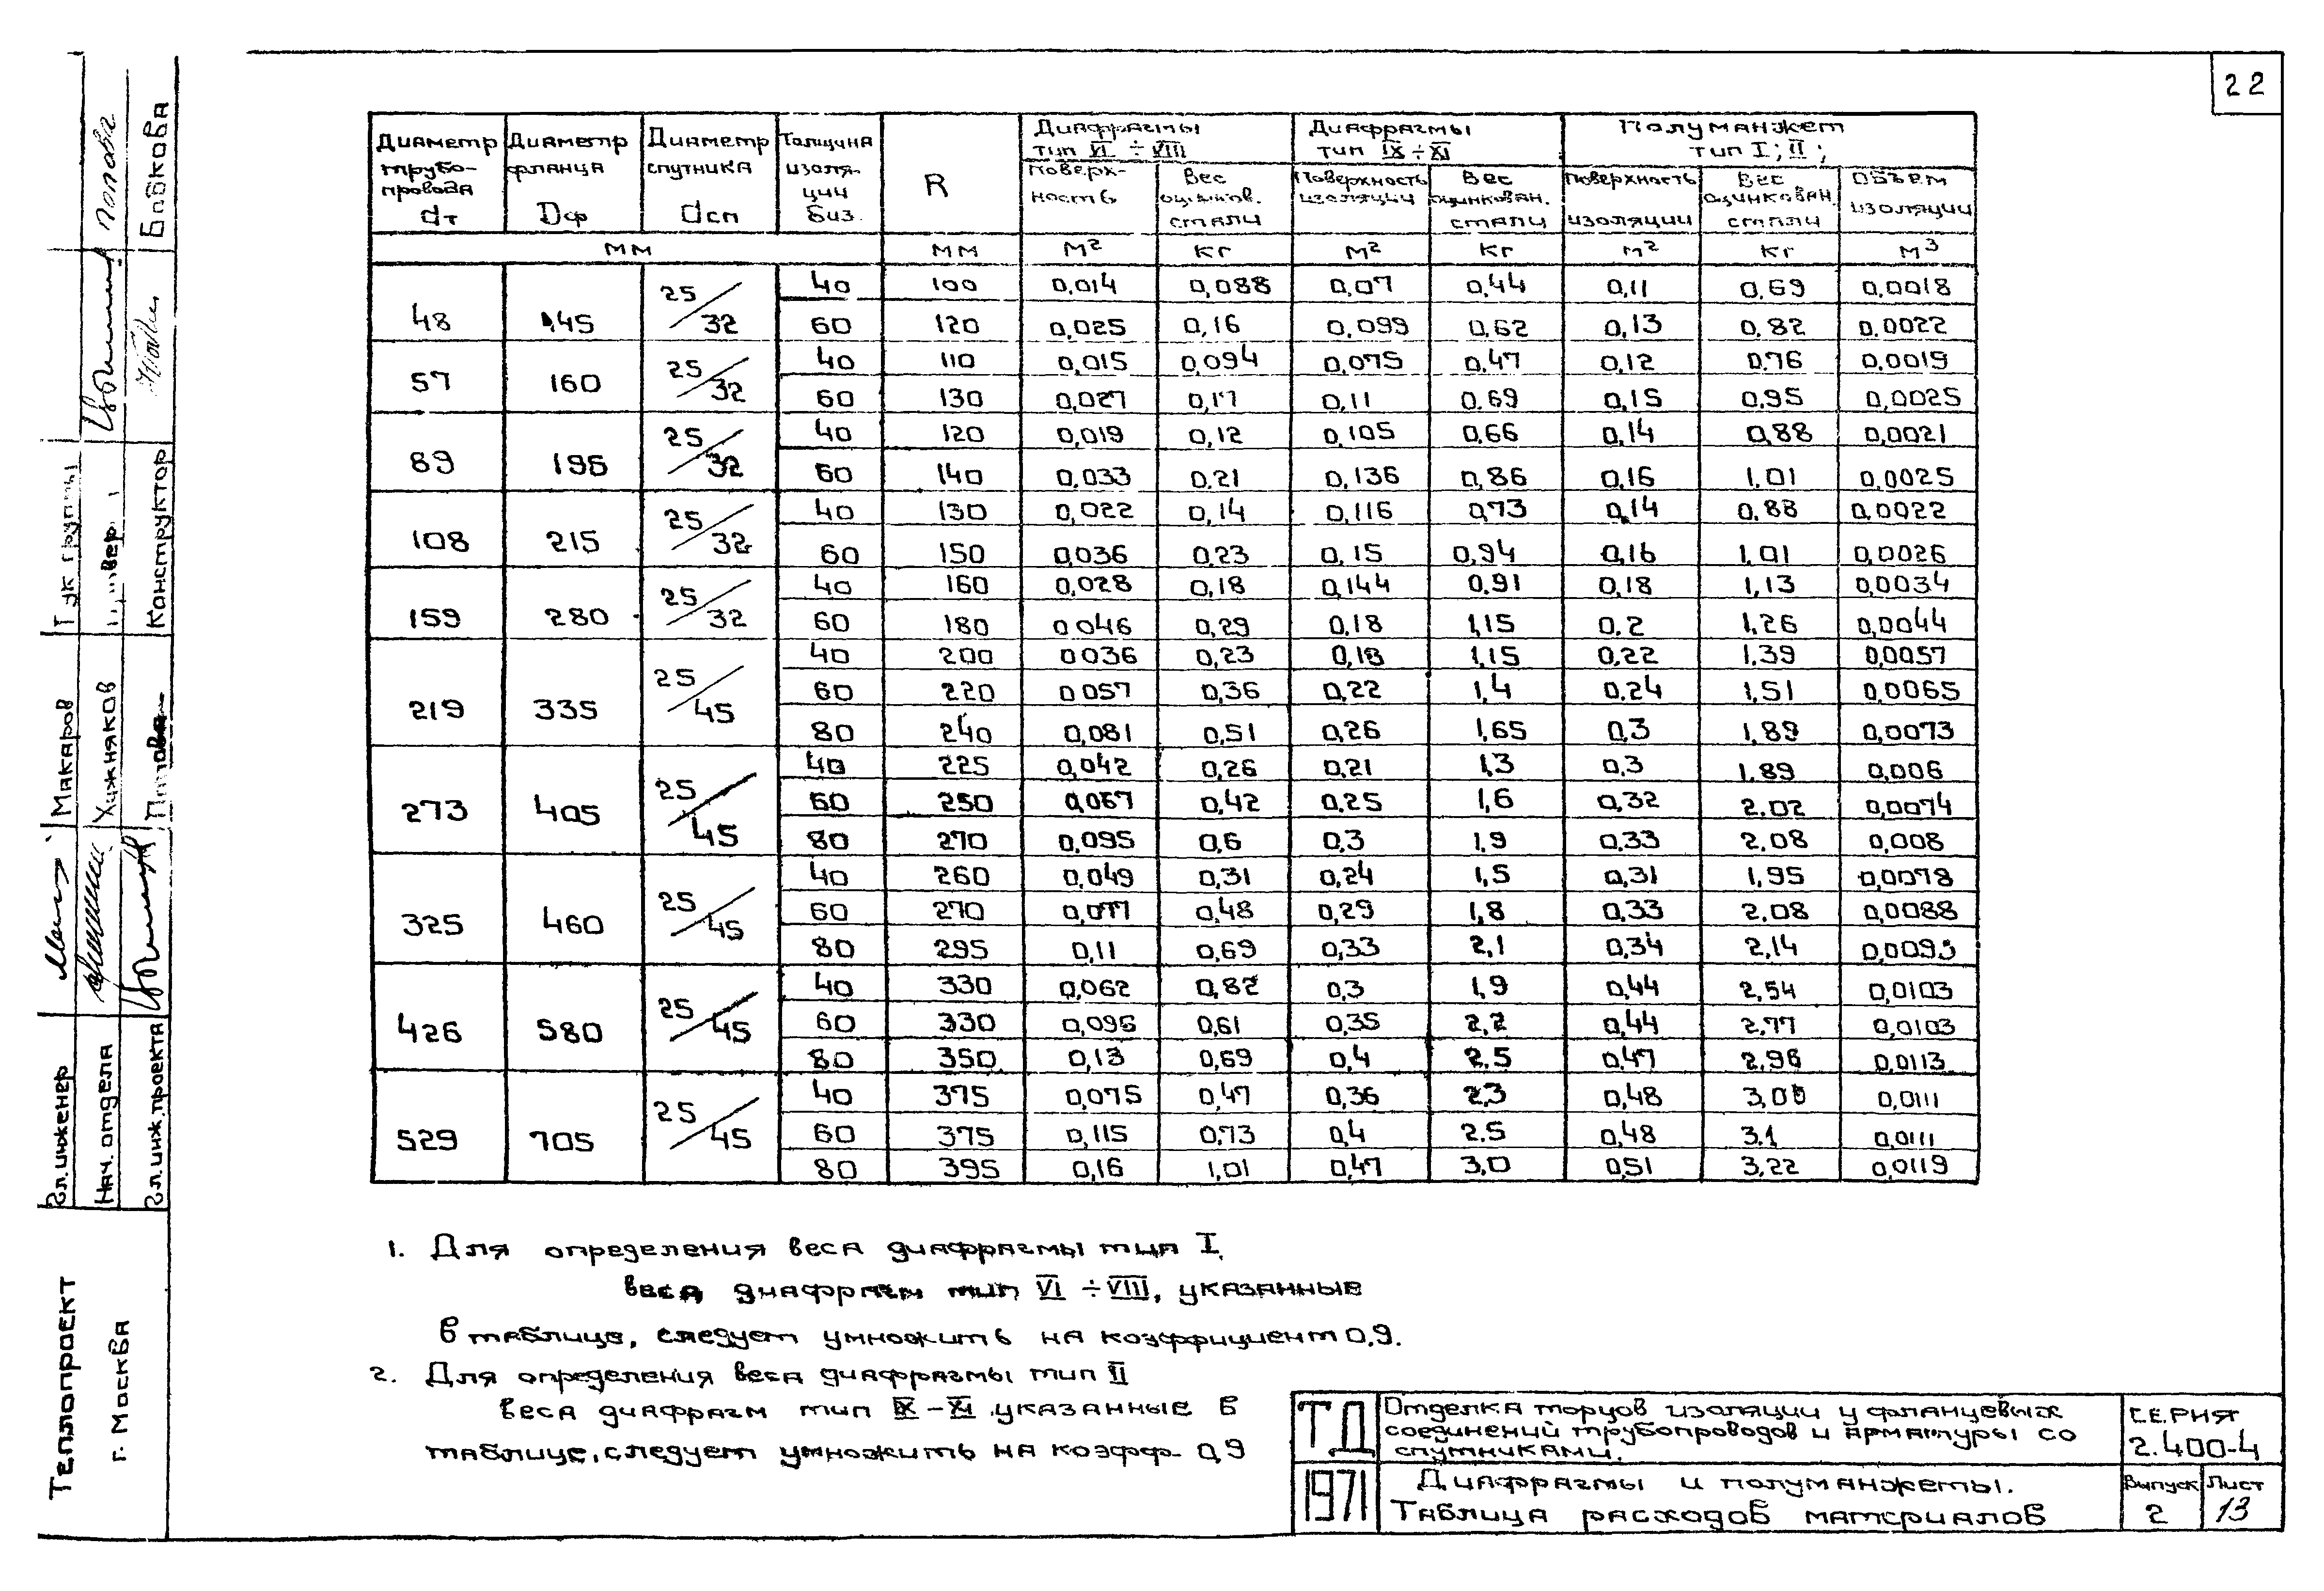 22
Диаметр трубо-провода dт
Диаметр фланца Dф
Диаметр спутника dсп
Толщина изоля-ции биз.
R
Диафрагмы тип VI ÷ VIII
Диафрагмы тип IX ÷ XI
Полуманжет тип I; II;
Поверх-ность
Вес оцинков. стали
Поверхность изоляции
Вес оцинкован. стали
Поверхность изоляции
Вес оцинкован. стали
Объем изоляции
мм мм м² кг м² кг м² кг м³
48 145 25/32 40 100 0,014 0,088 0,07 0,44 0,11 0,69 0,0018
60 120 0,025 0,16 0,099 0,62 0,13 0,82 0,0022
57 160 25/32 40 110 0,015 0,094 0,075 0,47 0,12 0,76 0,0019
60 130 0,027 0,17 0,11 0,69 0,15 0,95 0,0025
89 195 25/32 40 120 0,019 0,12 0,105 0,66 0,14 0,88 0,0021
60 140 0,033 0.21 0,136 0,86 0,16 1,01 0,0025
108 215 25/32 40 130 0,022 0,14 0,116 0,73 0,14 0,88 0,0022
60 150 0,036 0,23 0,15 0,94 0,16 1,01 0,0026
159 280 25/32 40 160 0,028 0,18 0,144 0.91 0,18 1,13 0,0034
60 180 0 046 0,29 0,18 1,15 0.2 1,26 0,0044
219 335 25/45 40 200 0 036 0,23 0,18 1,15 0,22 1.39 0,0057
60 220 0 057 0,36 0,22 1,4 0.24 1,51 0,0065
80 240 0,081 0,51 0,26 1,65 0,3 1,89 0,0073
273 405 25/45 40 225 0,042 0,26 0,21 1,3 0,3 1.89 0,006
60 250 0,067 0,42 0.25 1,6 0,32 2.02 0,0074
80 270 0,095 0,6 0,3 1,9 0,33 2.08 0,008
325 460 25/45 40 260 0,049 0,31 0,24 1,5 0,31 1,95 0,0078
60 270 0,077 0,48 0,29 1,8 0,33 2,08 0,0088
80 295 0,11 0,69 0,33 2,1 0,34 2,14 0,0095
426 580 25/45 40 330 0,062 0,82 0,3 1,9 0,44 2,54 0,0103
60 330 0,096 0,61 0,35 2,2 0,44 2.77 0,0103
80 350 0,13 0,69 0,4 2,5 0,47 2,96 0,0113
529 705 25/45 40 375 0,075 0,47 0,36 2,3 0,48 0,0111
60 375 0,115 0,73 0,4 2.5 0,48 3.1 0,0111
80 395 0,16 1,01 0,47 3,0 0,51 3.22 0,0119
1. Для определения веса диафрагмы тип I,
веса диафрагм тип VI ÷ VIII, указанные
в таблице, следует умножить на коэффициент 0,9.
2. Для определения веса диафрагмы тип II
веса диафрагм тип IX – XI указанные в
таблице, следует умножить на коэфф- 0,9
ТД
1971
Отделка торцов изоляции у фланцевых
соединений трубопроводов и арматуры со
спутниками.
Диафрагмы и полуманжеты.
Таблица расходов материалов
СЕРИЯ
2.400-4
Выпуск
2
Лист
13
Теплопроект
г. Москва
Гл. инженер
Макаров
Нач. отдела
Хижняков
Гл. инж. проекта
Рук группы
Попова
Конструктор
Бойкова